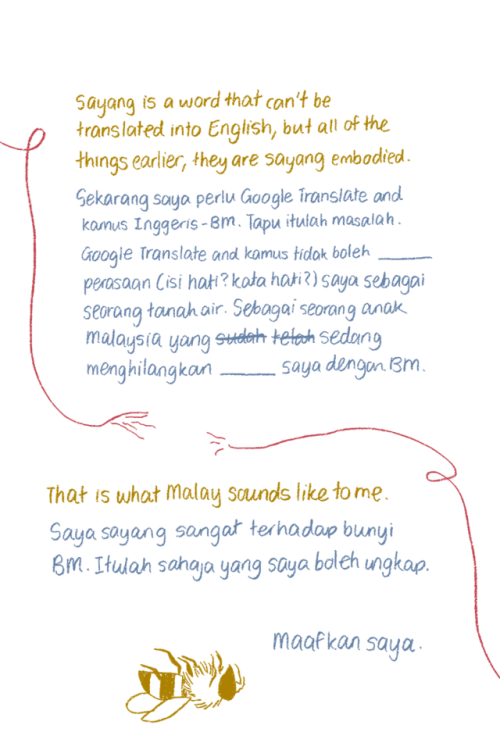 Sayang is a word that can't be
translated into English, but all of the
things earlier, they are sayang embodied.
Sekarang saya perlu Google Translate and
kamus Inggeris-BM. Tapu itulah masalah.
Google Translate and kamus tidak boleh ______
perasaan (isi hati? kata hati?) saya sebagai
seorang tanah air. Sebagai seorang anak
malaysia yang sudah telah sedang
menghilangkan ______ saya dengan BM.
That is what Malay sounds like to me.
Saya sayang sangat terhadap bunyi
BM. Itulah sahaja yang saya boleh ungkap.
Maafkan saya.